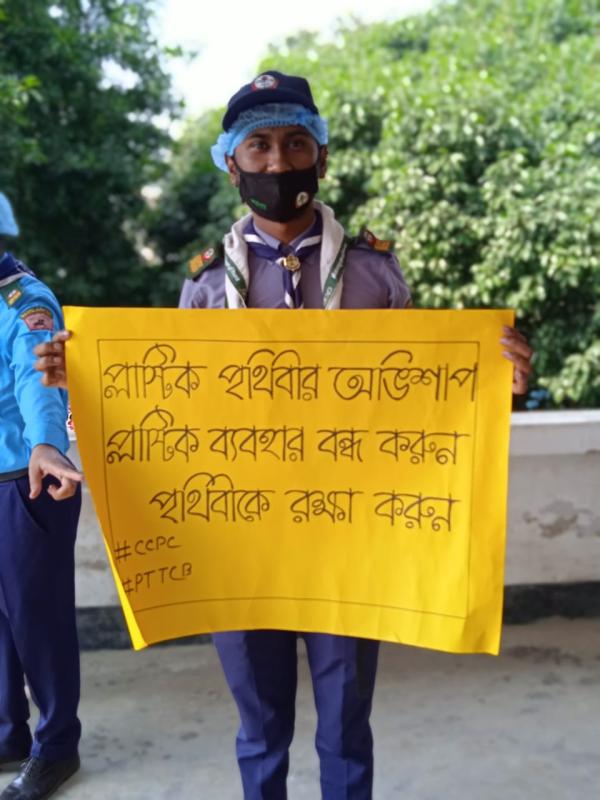 প্লাস্টিক পৃথিবীর অভিশাপ
প্লাস্টিক ব্যবহার বন্ধ করুন
পৃথিবীকে রক্ষা করুন
#CCPC
#PTTCB